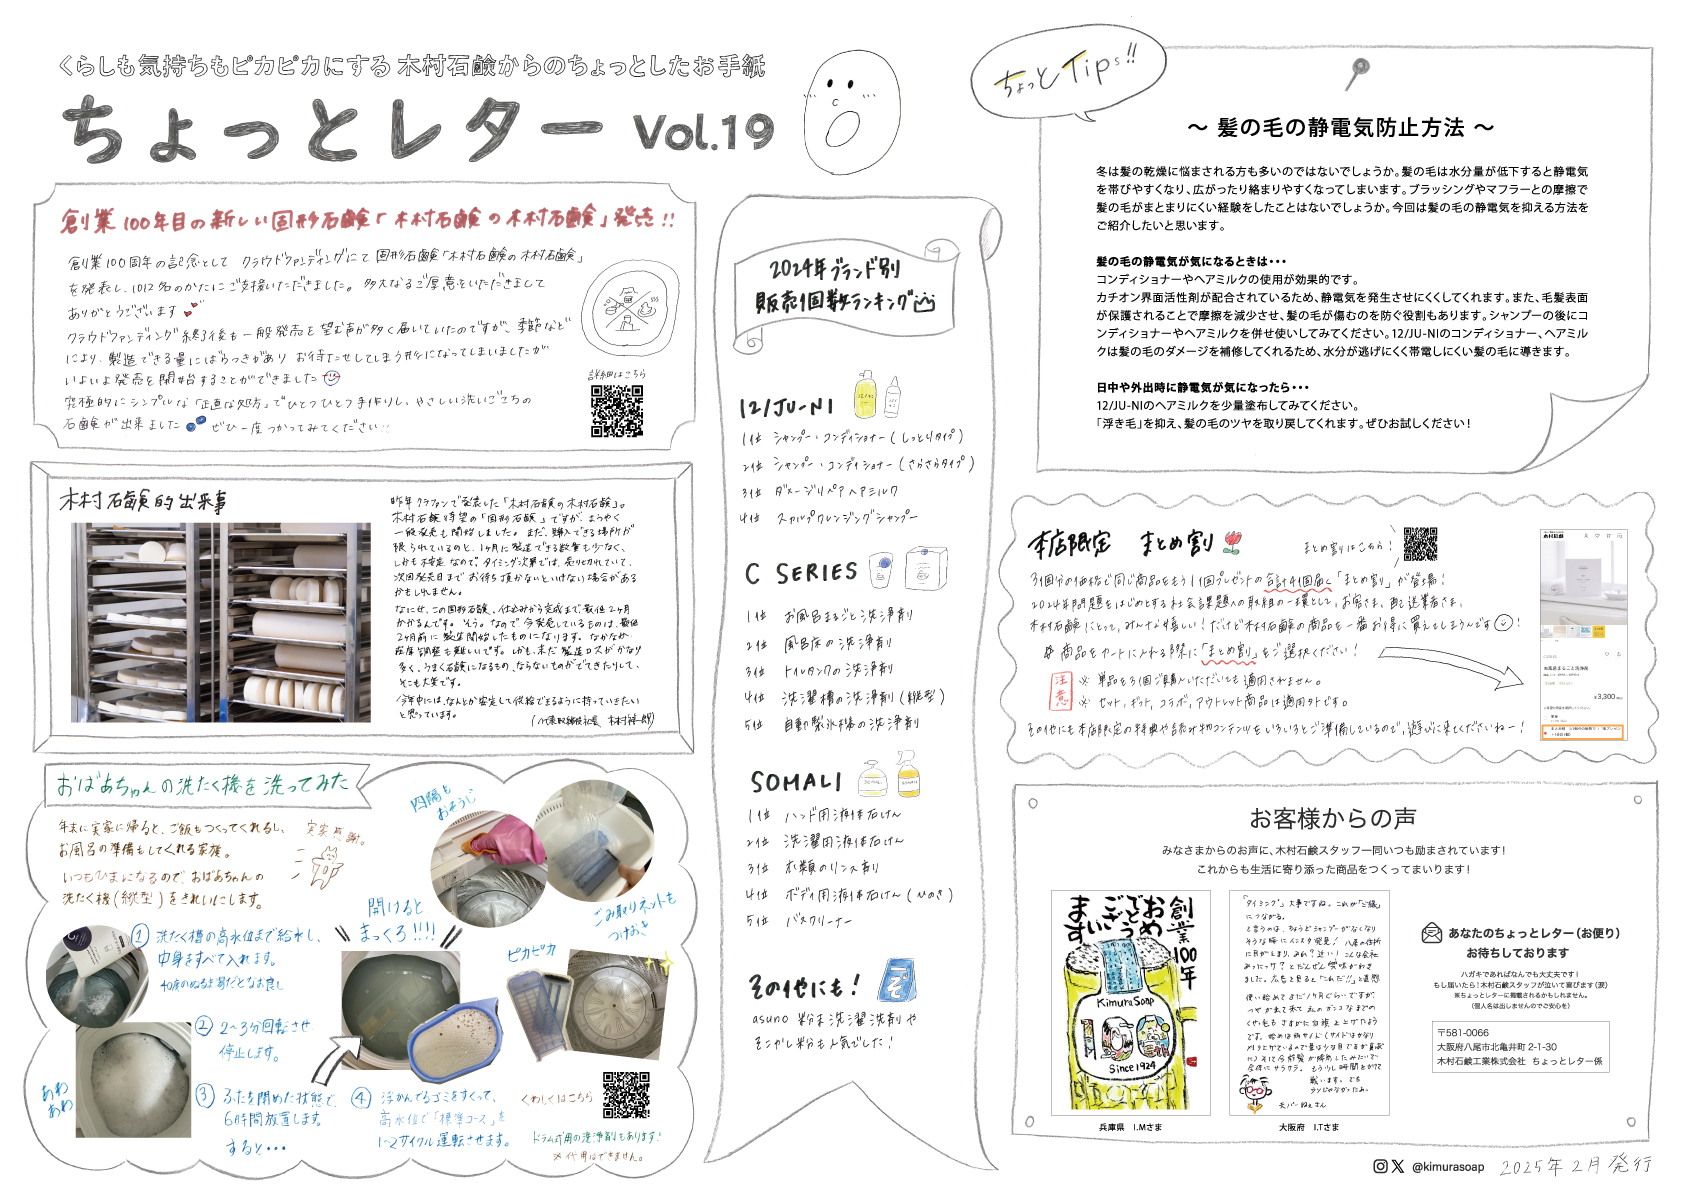 くらしも気持ちもピカピカにする 木村石鹸からのちょっとしたお手紙
ちょっとレター Vol.19
創業100年目の新しい固形石鹸「木村石鹸の木村石鹸」発売!!
創業100周年の記念として クラウドファンディングにて 固形石鹸「木村石鹸の木村石鹸」
を発表し、1012名のかたにご支援いただきました。多大なるご厚意をいただきまして
ありがとうございます
クラウドファンディング終了後も一般発売を望む声が多く届いていたのですが、季節など
により、製造できる量にばらつきがあり お待たせしてしまう形になってしまいましたが
いよいよ発売を開始することができました
究極的にシンプルな「正直な処方」でひとつひとつ手作りし、やさしい洗いごこちの
石鹸が出来ました ぜひ一度つかってみてください!!
詳細はこちら
木村石鹸的出来事
昨年クラファンで発表した「木村石鹸の木村石鹸」。
木村石鹸待望の「固形石鹸」ですが、ようやく
一般発売も開始しました。まだ、購入できる場所が
限られているのと、1ヶ月に製造できる数量も少なく、
しかも不安定なので、タイミング次第では、売り切れていて、
次回発売日までお待ち頂かないといけない場合がある
かもしれません。
なにせ、この固形石鹸、仕込みから完成まで、最低2ヶ月
かかるんです。そう。なので、今発売しているものは、最低
2ヶ月前に製造開始したものになります。なかなか
在庫調整も難しいです。しかも、まだ製造ロスがかなり
多く、うまく石鹸になるもの、ならないものがでてきたりして、
そこも大変です。
今年中には、なんとか安定して供給できるように持っていきたい
と思っています。
(代表取締役社長 木村祥一郎)
おばあちゃんの洗たく機を洗ってみた
年末に実家に帰ると、ご飯もつくってくれるし、
お風呂の準備もしてくれる家族。
いつもひまになるので、おばあちゃんの
洗たく機(縦型)をきれいにします。
実家感謝。
① 洗たく槽の高水位まで給水し、
中身をすべて入れます。
40度のぬるま湯だとなお良し
② 2〜3分回転させ
停止します。
あわ
あわ
③ ふたを閉めた状態で、
6時間放置します。
すると・・・
開けると
まっくろ!!!!
④ 浮かんでるゴミをすくって、
高水位で「標準コース」を
1〜2サイクル運転させます。
四隅も
おそうじ
ごみ取りネットも
つけおき
ピカピカ
くわしくはこちら
ドラム式用の洗浄剤もあります!
※代用はできません。
2024年ブランド別
販売個数ランキング
12/JU-NI
1位 シャンプー・コンディショナー(しっとりタイプ)
2位 シャンプー・コンディショナー(さらさらタイプ)
3位 ダメージリペアヘアミルク
4位 スカルプクレンジングシャンプー
C SERIES
1位 お風呂まるごと洗浄剤
2位 風呂床の洗浄剤
3位 トイレタンクの洗浄剤
4位 洗濯槽の洗浄剤(縦型)
5位 自動製氷機の洗浄剤
SOMALI
1位 ハンド用液体石けん
2位 洗濯用液体石けん
3位 衣類のリンス剤
4位 ボディ用液体石けん(ひのき)
5位 バスクリーナー
その他にも!
asuno 粉末洗濯洗剤や
そこかし粉も人気でした!
ちょっとTips!!
〜 髪の毛の静電気防止方法 〜
冬は髪の乾燥に悩まされる方も多いのではないでしょうか。髪の毛は水分量が低下すると静電気
を帯びやすくなり、広がったり絡まりやすくなってしまいます。ブラッシングやマフラーとの摩擦で
髪の毛がまとまりにくい経験をしたことはないでしょうか。今回は髪の毛の静電気を抑える方法を
ご紹介したいと思います。
髪の毛の静電気が気になるときは・・・
コンディショナーやヘアミルクの使用が効果的です。
カチオン界面活性剤が配合されているため、静電気を発生させにくくしてくれます。また、毛髪表面
が保護されることで摩擦を減少させ、髪の毛が傷むのを防ぐ役割もあります。シャンプーの後にコ
ンディショナーやヘアミルクを併せ使いしてみてください。12/JU-NIのコンディショナー、ヘアミル
クは髪の毛のダメージを補修してくれるため、水分が逃げにくく帯電しにくい髪の毛に導きます。
日中や外出時に静電気が気になったら・・・
12/JU-NIのヘアミルクを少量塗布してみてください。
「浮き毛」を抑え、髪の毛のツヤを取り戻してくれます。ぜひお試しください!
本店限定 まとめ割
まとめ割はこちら!
3個分の価格で同じ商品をもう1個プレゼントの合計4個届く「まとめ割」が登場!
2024年問題をはじめとする社会課題への取組の一環として、お客さま、配送業者さま、
木村石鹸にとって、みんなが嬉しい!だけど木村石鹸の商品を一番お得に買えてしまうんです!
商品をカートに入れる際に「まとめ割」をご選択ください!
注意
※ 単品を3個ご購入いただいても適用されません。
※ セット、ギフト、コラボ、アウトレット商品は適用外です。
その他にも本店限定の特典や読み物コンテンツをいろいろとご準備しているので、遊びに来てくださいねー!
木村石鹸
お風呂まるごと洗浄剤
¥3,300
お客様からの声
みなさまからのお声に、木村石鹸スタッフ一同いつも励まされています!
これからも生活に寄り添った商品をつくってまいります!
創業100年
おめでとうございます
KimuraSoap
100
Since 1924
兵庫県 I.Mさま
「タイミング」大事ですね。これが「ご縁」
につながる。
大阪府 I.Tさま
あなたのちょっとレター(お便り)
お待ちしております
ハガキであればなんでも大丈夫です!
もし届いたら!木村石鹸スタッフが泣いて喜びます(涙)
※ちょっとレターに掲載されるかもしれません。
(個人名は出しませんのでご安心を)
〒581-0066
大阪府八尾市北亀井町 2-1-30
木村石鹸工業株式会社 ちょっとレター係
@kimurasoap
2025年2月発行